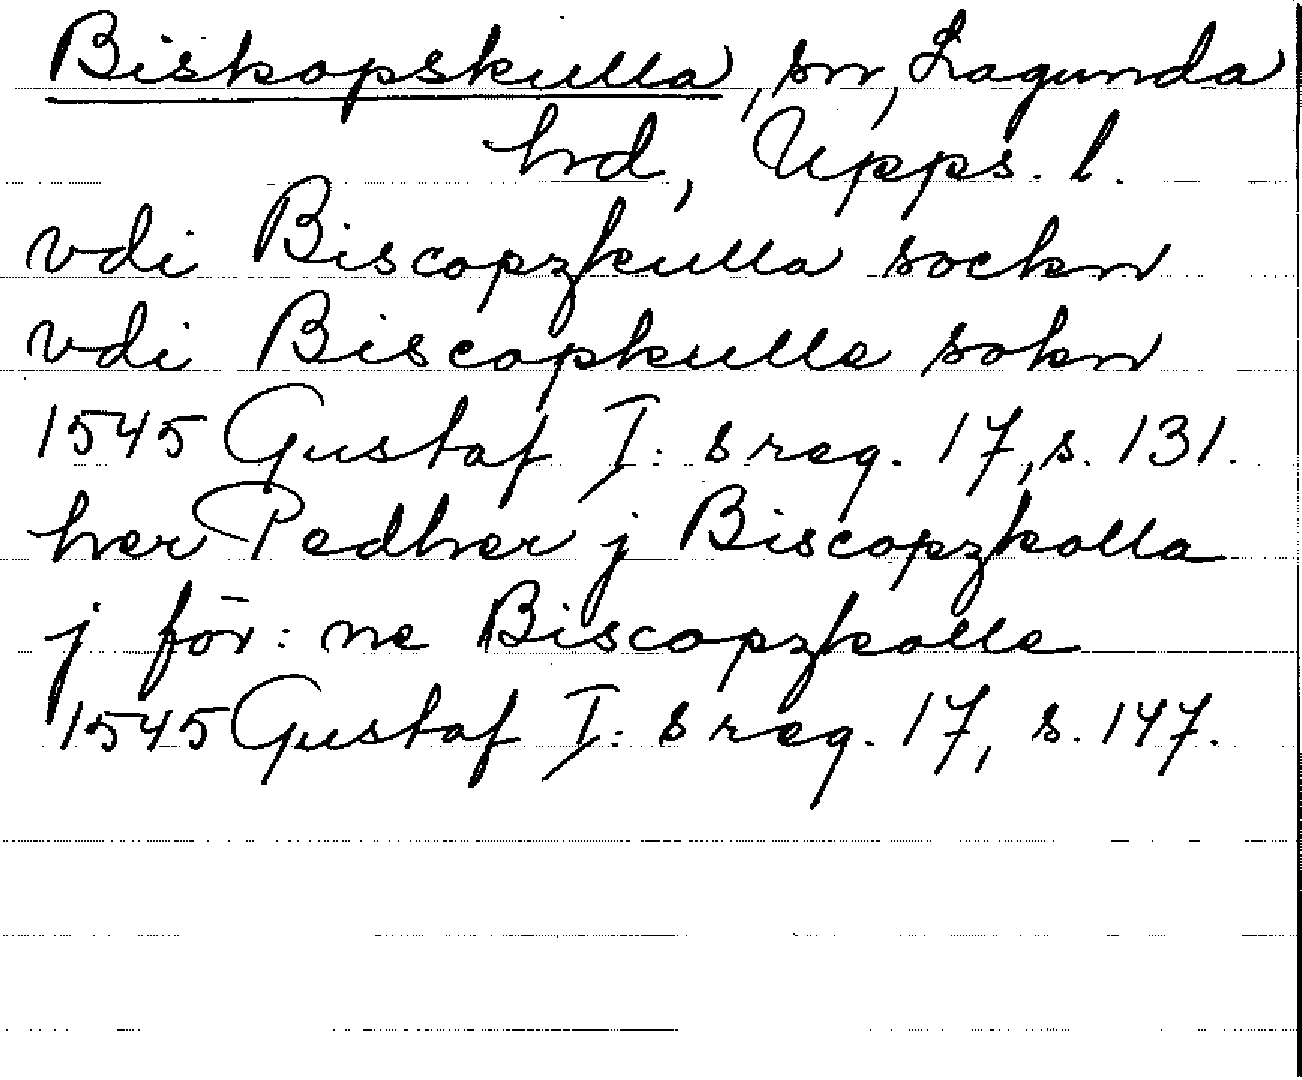 Biskopskulla, sn, Lagunda
hrd, Upps. l.
vdi Biscopzkulla sockn
vdi Biscopkulle sokn
1545 Gustaf I:s reg. 17, s. 131.
her Pedher j Biscopzkolla
j för:ne Biscopzkolle
1545 Gustaf I:s reg. 17, s. 147.